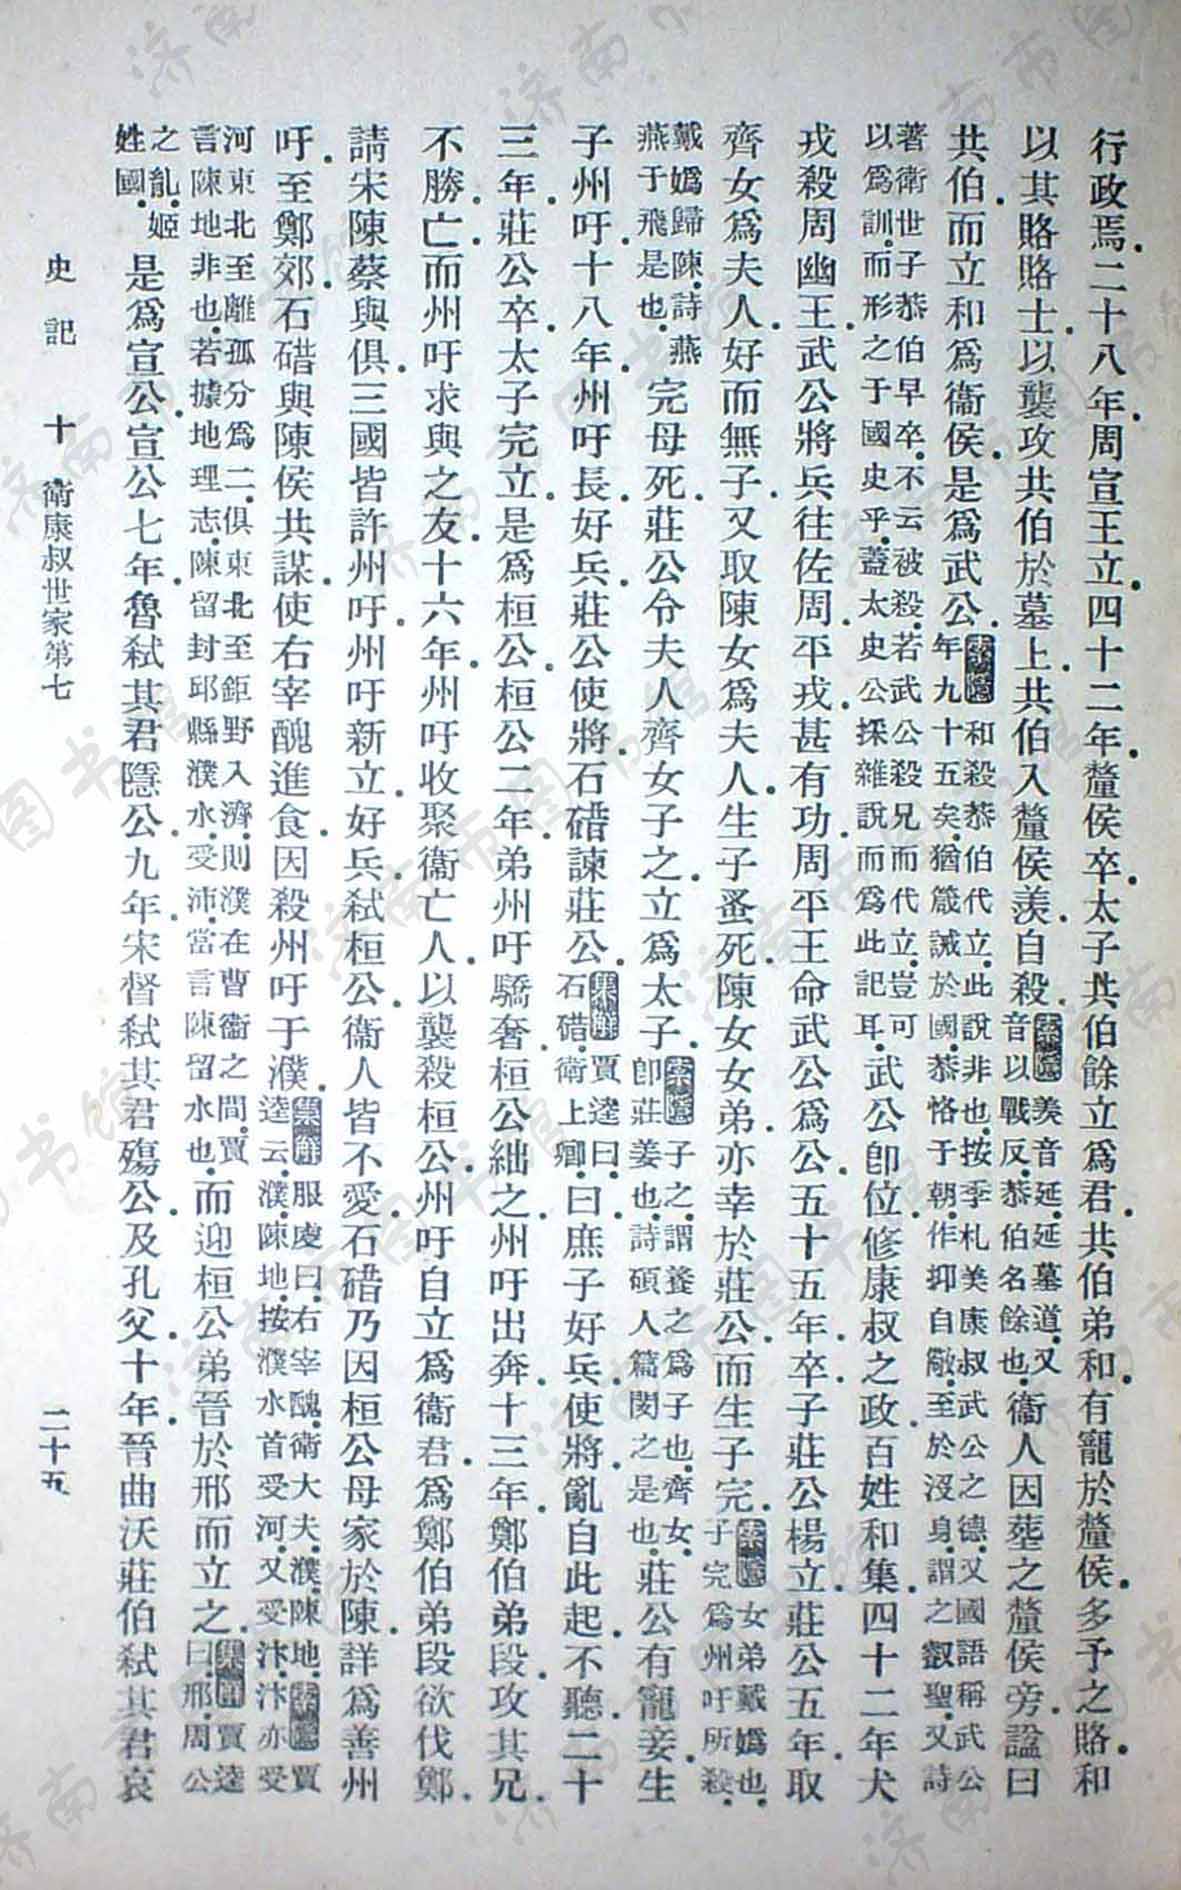 行政焉.二十八年.周宣王立.四十二年.釐侯卒.太子共伯餘立爲君.共伯弟和.有寵於釐侯.多予之賂.和
以其賂賂士.以襲攻共伯於墓上.共伯入釐侯羨.自殺.【索隱】羨音延.延墓道.又音以戰反.恭伯名餘也.衞人因葬之釐侯旁.諡曰
共伯.而立和爲衞侯.是爲武公.【索隱】和殺恭伯代立.此說非也.按季札美康叔武公之德.又國語稱武公年九十五矣.猶箴誡於國.恭恪于朝.作抑自儆.至於沒身.謂之叡聖.又詩
著衞世子恭伯早卒.不云被殺.若武公殺兄而代立.豈可以爲訓.而形之于國史乎.蓋太史公採雜說而爲此記耳.武公卽位.修康叔之政.百姓和集.四十二年.犬
戎殺周幽王.武公將兵往佐周平戎.甚有功.周平王命武公爲公.五十五年.卒.子莊公楊立.莊公五年.取
齊女爲夫人.好而無子.又取陳女爲夫人.生子蚤死.陳女女弟.亦幸於莊公.而生子完.【索隱】女弟戴嬀也.子完爲州吁所殺.
戴嬀歸陳.詩燕燕于飛是也.完母死.莊公令夫人齊女子之.立爲太子.【索隱】子之.謂養之爲子也.齊女.卽莊姜也.詩碩人篇閔之是也.莊公有寵妾.生
子州吁.十八年.州吁長.好兵.莊公使將.石碏諫莊公.【集解】賈逵曰.石碏.衛上卿.曰.庶子好兵.使將.亂自此起.不聽.二十
三年.莊公卒.太子完立.是爲桓公.桓公二年.弟州吁驕奢.桓公絀之.州吁出奔.十三年.鄭伯弟段.攻其兄.
不勝.亡.而州吁求與之友.十六年.州吁收聚衞亡人.以襲殺桓公.州吁自立爲衞君.爲鄭伯弟段欲伐鄭.
請宋陳蔡與俱.三國皆許州吁.州吁新立.好兵.弑桓公.衞人皆不愛.石碏乃因桓公母家於陳.詳爲善州
吁.至鄭郊.石碏與陳侯共謀.使右宰醜進食.因殺州吁于濮.【集解】服虔曰.右宰醜.衛大夫.濮.陳地.【索隱】賈逵云.濮.陳地.按濮水首受河.又受汴.汴亦受
河.東北至離狐分爲二.俱東北至鉅野入濟.則濮在曹衞之間.賈言陳地非也.若據地理志.陳留封邱縣濮水.受沛.當言陳留水也.而迎桓公弟晉於邢而立之.【集解】賈逵曰.邢.周公
之胤.姬姓國.是爲宣公.宣公七年.魯弑其君隱公.九年.宋督弑其君殤公.及孔父.十年.晉曲沃莊伯弑其君哀
史記 十 衞康叔世家第七 二十五